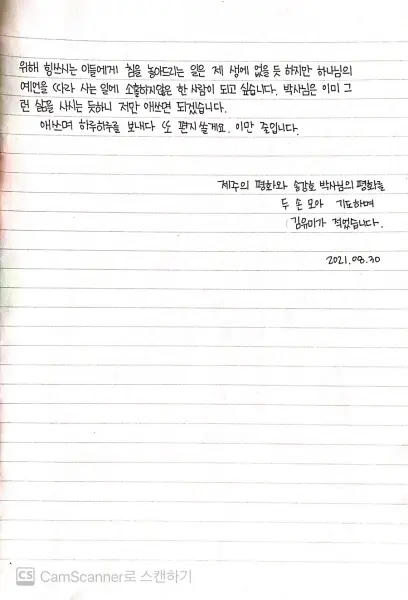 위해 힘쓰시는 이들에게 침을 놓아드리는 일은 제 생에 없을 듯 하지만 하나님의
예언을 따라 사는 일에 소홀하지않은 한 사람이 되고 싶습니다. 박사님은 이미 그
런 삶을 사시는 듯하니 저만 애쓰면 되겠습니다.
애쓰며 하루하루를 보내다 또 편지 쓸게요. 이만 줄입니다.
제주의 평화와 송강호 박사님의 평화를
두 손 모아 기도하며
김유미가 적었습니다.
2021.08.30
CS CamScanner로 스캔하기